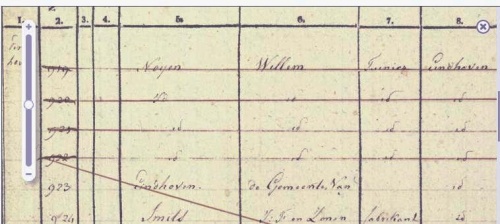 1. 2. 3. 4. 5. 6. 7. 8.
919 Noyen Willem Eindhoven
920 id id id id
921 id id id id
922 id id id id
923 Eindhoven de Gemeente Van id
924 Smits en Zonen fabrikant id